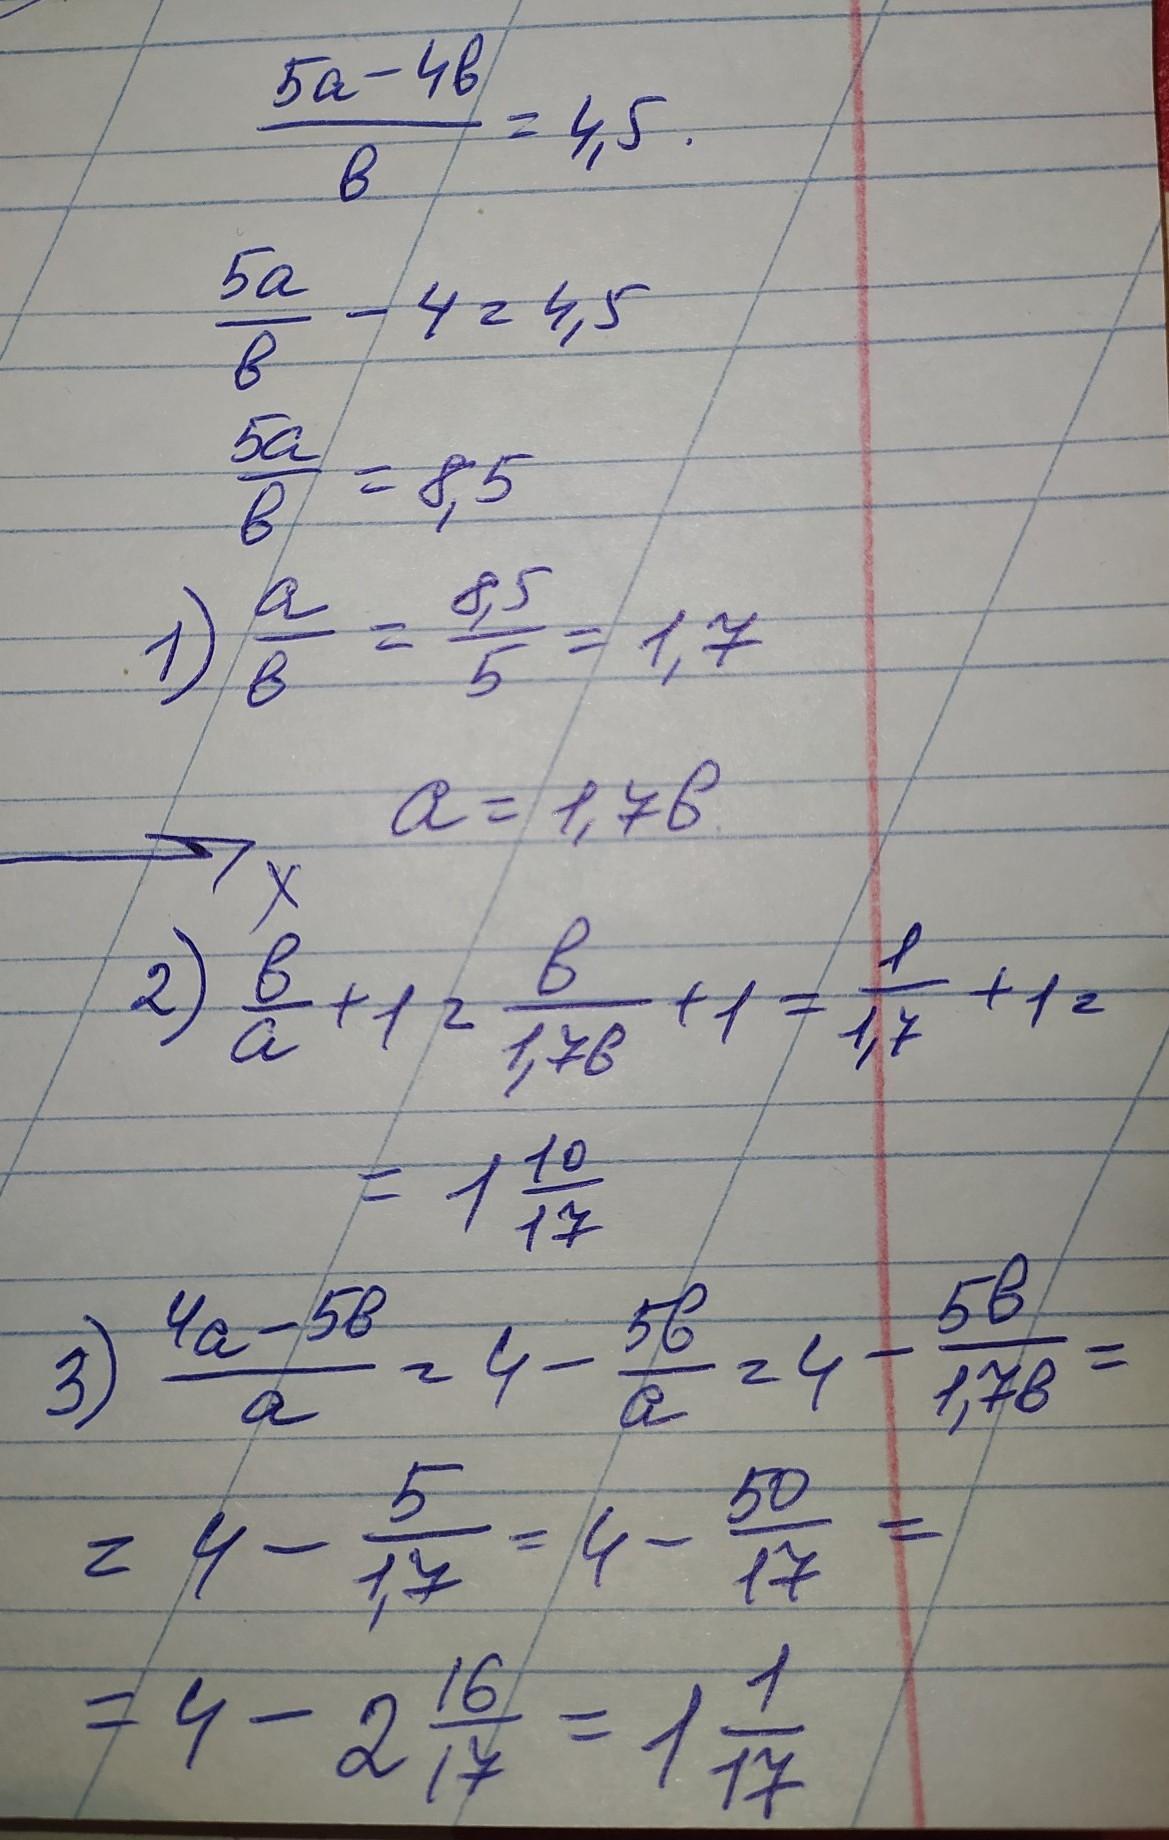 (5a-4b)/b = 4,5.
5a/b - 4 = 4,5
5a/b = 8,5
1) a/b = 8,5/5 = 1,7
a = 1,7b
x
2) b/a + 1 = b/1,7b + 1 = 1/1,7 + 1 =
= 1 10/17
3) (4a-5b)/a = 4 - 5b/a = 4 - 5b/1,7b =
= 4 - 5/1,7 = 4 - 50/17 =
= 4 - 2 16/17 = 1 1/17